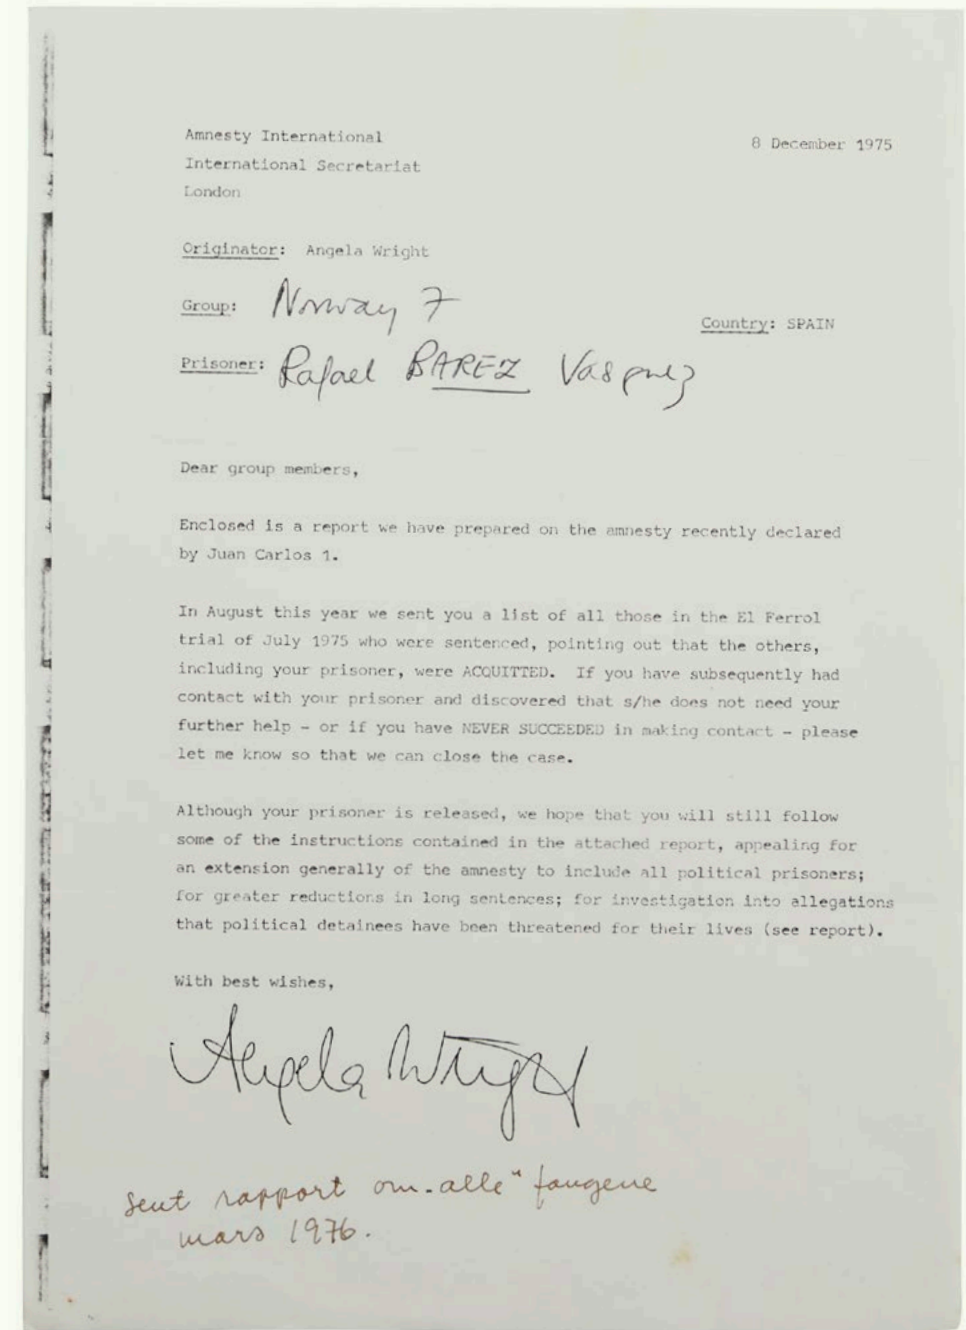 Amnesty International
8 December 1975
International Secretariat
London
Originator: Angela Wright
Group: Norway 7
Country: SPAIN
Prisoner: Rafael BAREZ Vasquez
Dear group members,
Enclosed is a report we have prepared on the amnesty recently declared
by Juan Carlos 1.
In August this year we sent you a list of all those in the El Ferrol
trial of July 1975 who were sentenced, pointing out that the others,
including your prisoner, were ACQUITTED. If you have subsequently had
contact with your prisoner and discovered that s/he does not need your
further help - or if you have NEVER SUCCEEDED in making contact - please
let me know so that we can close the case.
Although your prisoner is released, we hope that you will still follow
some of the instructions contained in the attached report, appealing for
an extension generally of the amnesty to include all political prisoners;
for greater reductions in long sentences; for investigation into allegations
that political detainees have been threatened for their lives (see report).
With best wishes,
Angela Wright
Sent rapport om "alle" fangene
mars 1976.